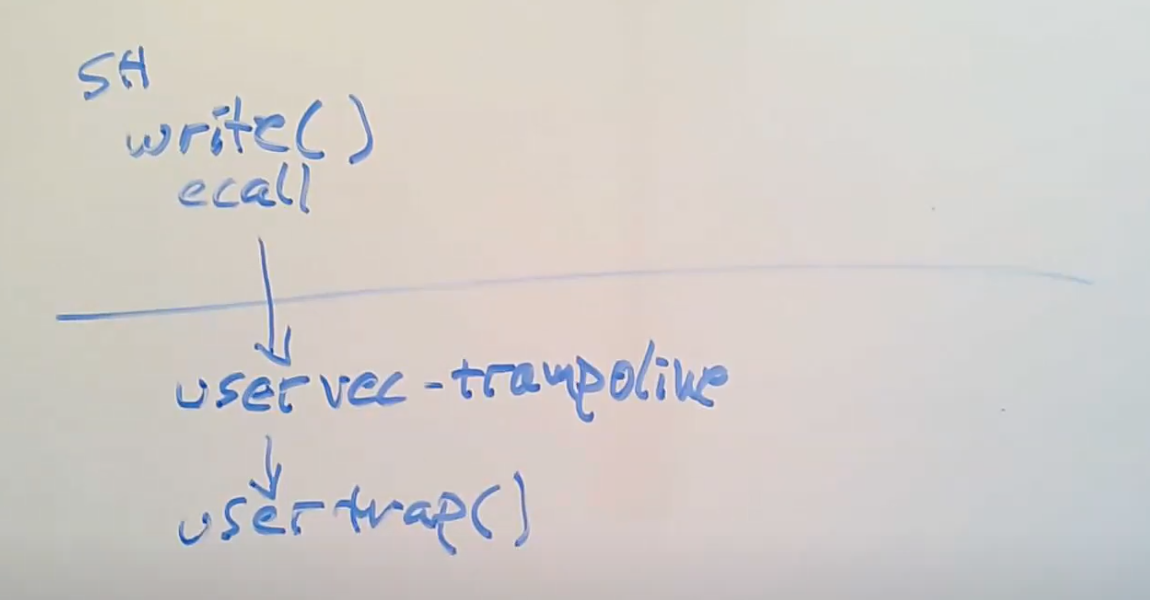 SH
write()
ecall
uservec-trampoline
usertrap()